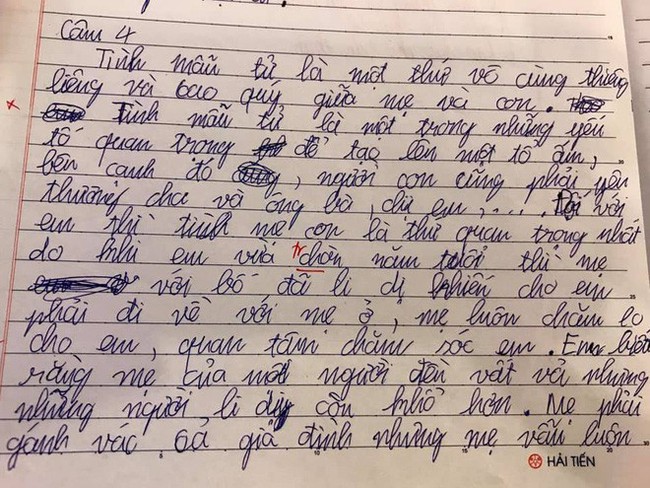 Câu 4
Tình mẫu tử là một thứ vô cùng thiêng
liêng và cao quý giữa mẹ và con.
Tình mẫu tử là một trong những yếu
tố quan trọng để tạo lên một tổ ấm,
bên cạnh đó, người con cũng phải yêu
thương cha và ông bà, chú em,.... Đối với
em thì tình mẹ con là thứ quan trọng nhất
do khi em vừa chòn năm tuổi thì mẹ
tr
với bố đã li dị khiến cho em
phải đi về với mẹ ở, mẹ luôn chăm lo
cho em, quan tâm chăm sóc em. Em
rằng mẹ của một người đều vất vả nhưng
những người li dị còn khổ hơn. Mẹ phải
gánh vác cả gia đình nhưng mẹ vẫn luôn
HẢI TIẾN